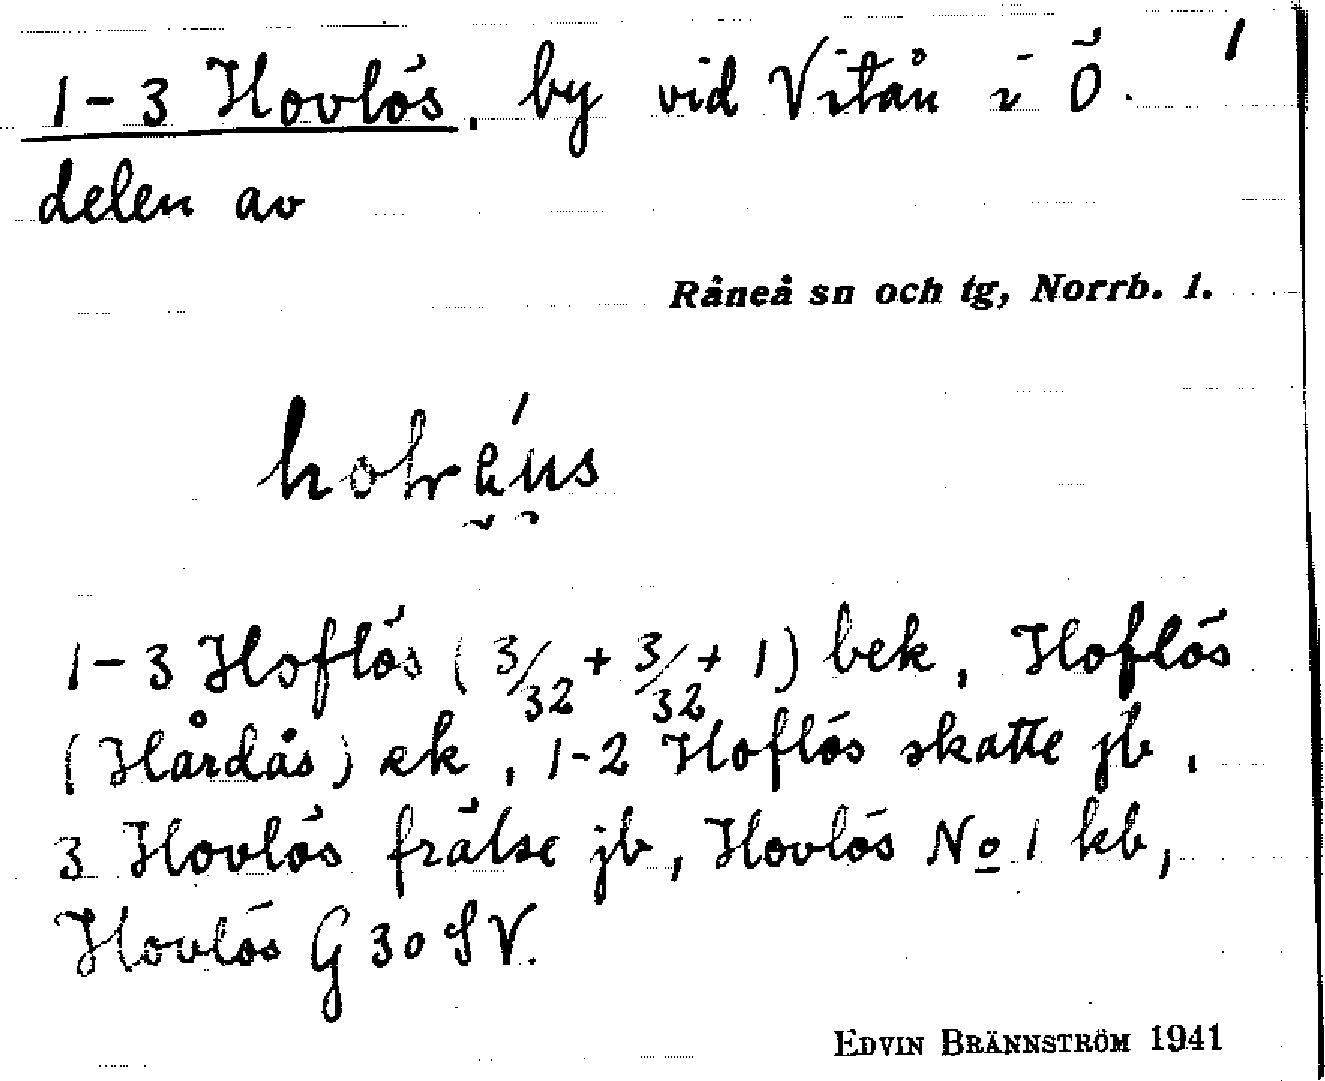 1-3 Hovlös, by vid Vitån i Ö. 1
delen av
Råneå sn och tg, Norrb. l.
1-3 Hoflös (3/32 + 3/32 + 1) bek, Hoflös
(Hårdås) ek, 1-2 Hoflös skatte jb,
3 Hovlös frälse jb, Hovlös No 1 kb,
Hovlös G 30 SV.
EDVIN BRÄNNSTRÖM 1941